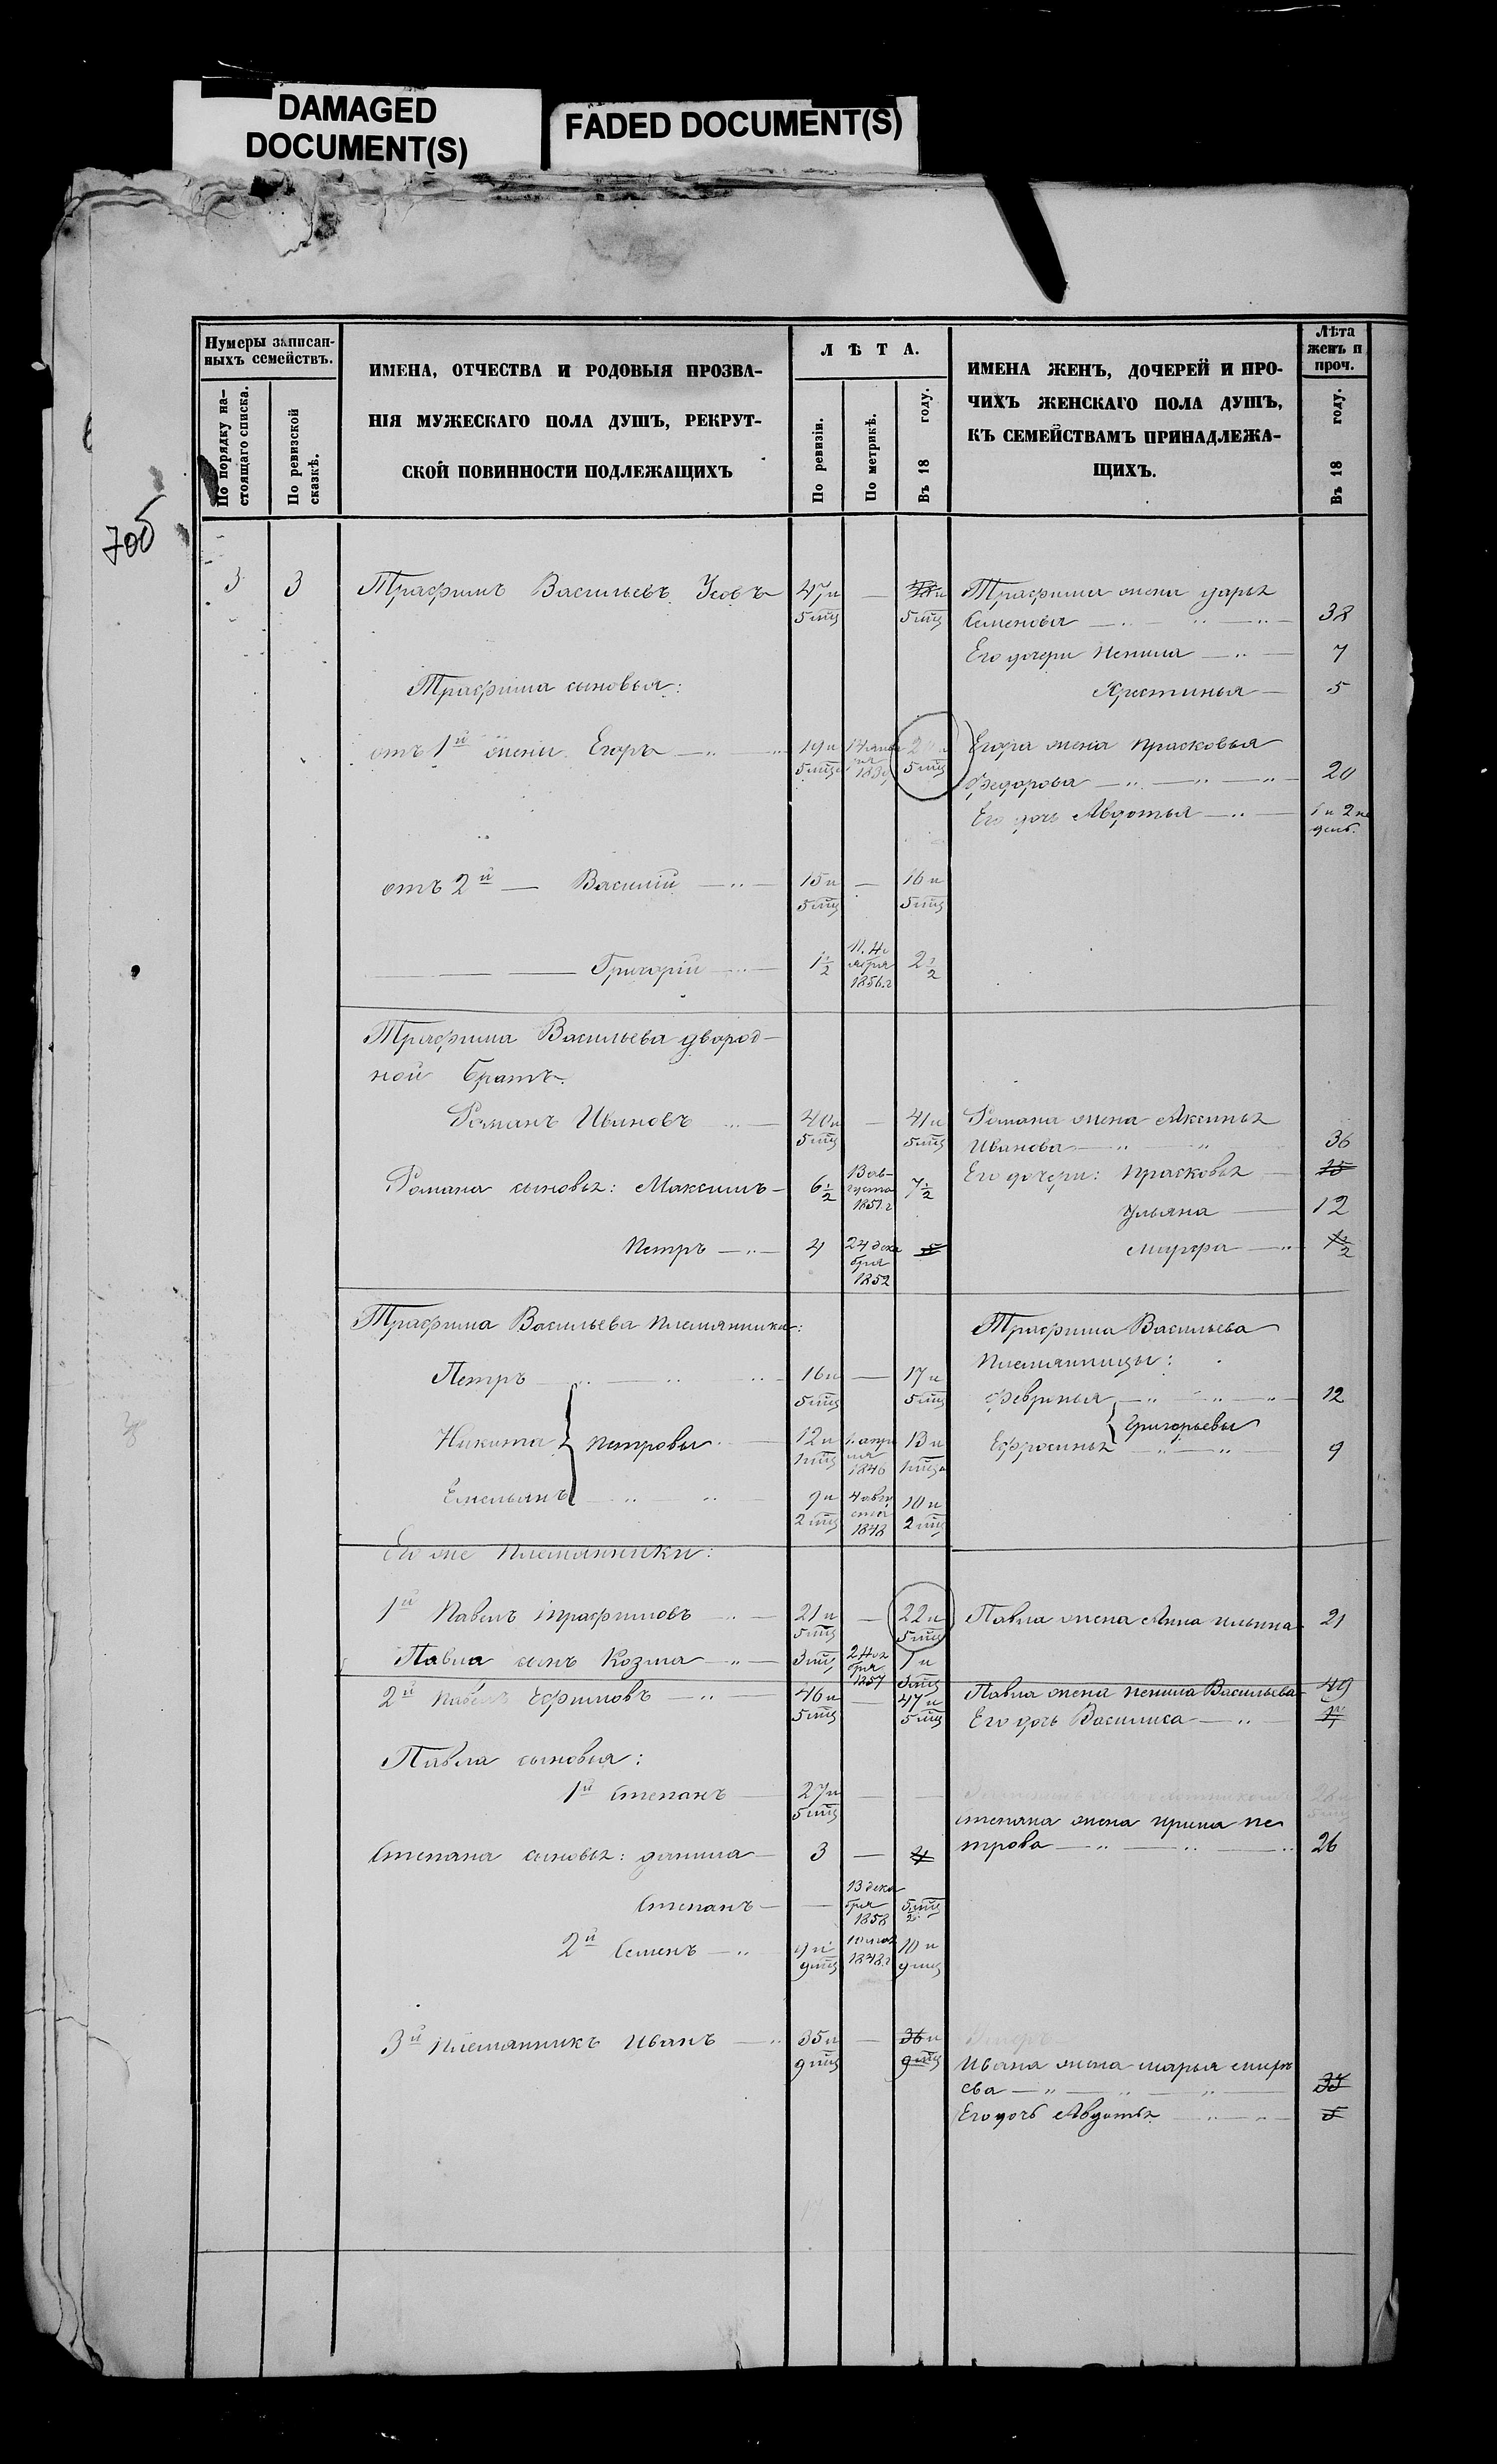 DAMAGED
DOCUMENT(S)
FADED DOCUMENT(S)
Нумеры записан-
ныхъ семействъ.
По порядку на-
стоящаго списка.
По ревизской
сказкѣ.
ИМЕНА, ОТЧЕСТВА И РОДОВЫЯ ПРОЗВА-
НІЯ МУЖЕСКАГО ПОЛА ДУШЪ, РЕКРУТ-
СКОЙ ПОВИННОСТИ ПОДЛЕЖАЩИХЪ
ЛѢТА.
По ревизіи.
По метрикѣ.
Въ 18 году.
ИМЕНА ЖЕНЪ, ДОЧЕРЕЙ И ПРО-
ЧИХЪ ЖЕНСКАГО ПОЛА ДУШЪ,
КЪ СЕМЕЙСТВАМЪ ПРИНАДЛЕЖА-
ЩИХЪ.
Лѣта
женъ и
проч.
Въ 18 году.
700
3 3 Трафимъ Васильевъ Усовъ 47 и — Трафима жена Дарья
5 мѣц 5 мѣц Семенова 38
Его дочери Ненила 7
Трафима сыновья: Христинья 5
отъ 1й жены Егоръ 19 и Егора жена Прасковья
5 мѣц 5 мѣц Федорова 20
Его дочь Авдотья 1 и 2 не
дѣл.
отъ 2й — Василій 15 и — 16 и
5 мѣц 5 мѣц
Григорій 1½ 1856 г 2½
Трафима Васильева двород-
ной братъ
Романъ Ивановъ 40 и — 41 и Романа жена Аксинья
5 мѣц 5 мѣц Иванова 36
Романа сыновья: Максимъ 6½ 13 ав-
густа
1851 г 7½ Его дочери: Прасковья 15
Ульяна 12
Петръ 4 24 дека
бря
1852 5 Марфа 1½
Трафима Васильева племянники: Трафима Васильева
племянницы:
Петръ 16 и — 17 и
5 мѣц 5 мѣц Февринья 12
Никита Петровы 12 и 1 апрѣ
ля
1846 13 и Григорьевы
1 мѣц 1 мѣц Ефросинья 9
Емельянъ 9 и 4 авгу
ста
1848 10 и
2 мѣц 2 мѣц
Его же племянники:
1й Павелъ Трафимовъ 21 и — 22 и Павла жена Анна Ильина 21
5 мѣц 5 мѣц
Павла сынъ Козма 3 мѣц 1857 1 и
3 мѣц
2й Павелъ Ефимовъ 46 и — 47 и Павла жена Ненила Васильева 49
5 мѣц 5 мѣц Его дочь Василиса
Павла сыновья:
1й Степанъ 27 и — —
5 мѣц Степана жена Ирина Пе
трова 26
Степана сыновья: Данила 3 — 4
Степанъ — 13 дека
бря
1858 5 мѣц
2й Семенъ 9 и 1848 г 10 и
9 мѣц 9 мѣц
3й племянникъ Иванъ 35 и — 36 и Умеръ
9 мѣц 9 мѣц Ивана жена Марья
ева
Его дочь Авдотья 5